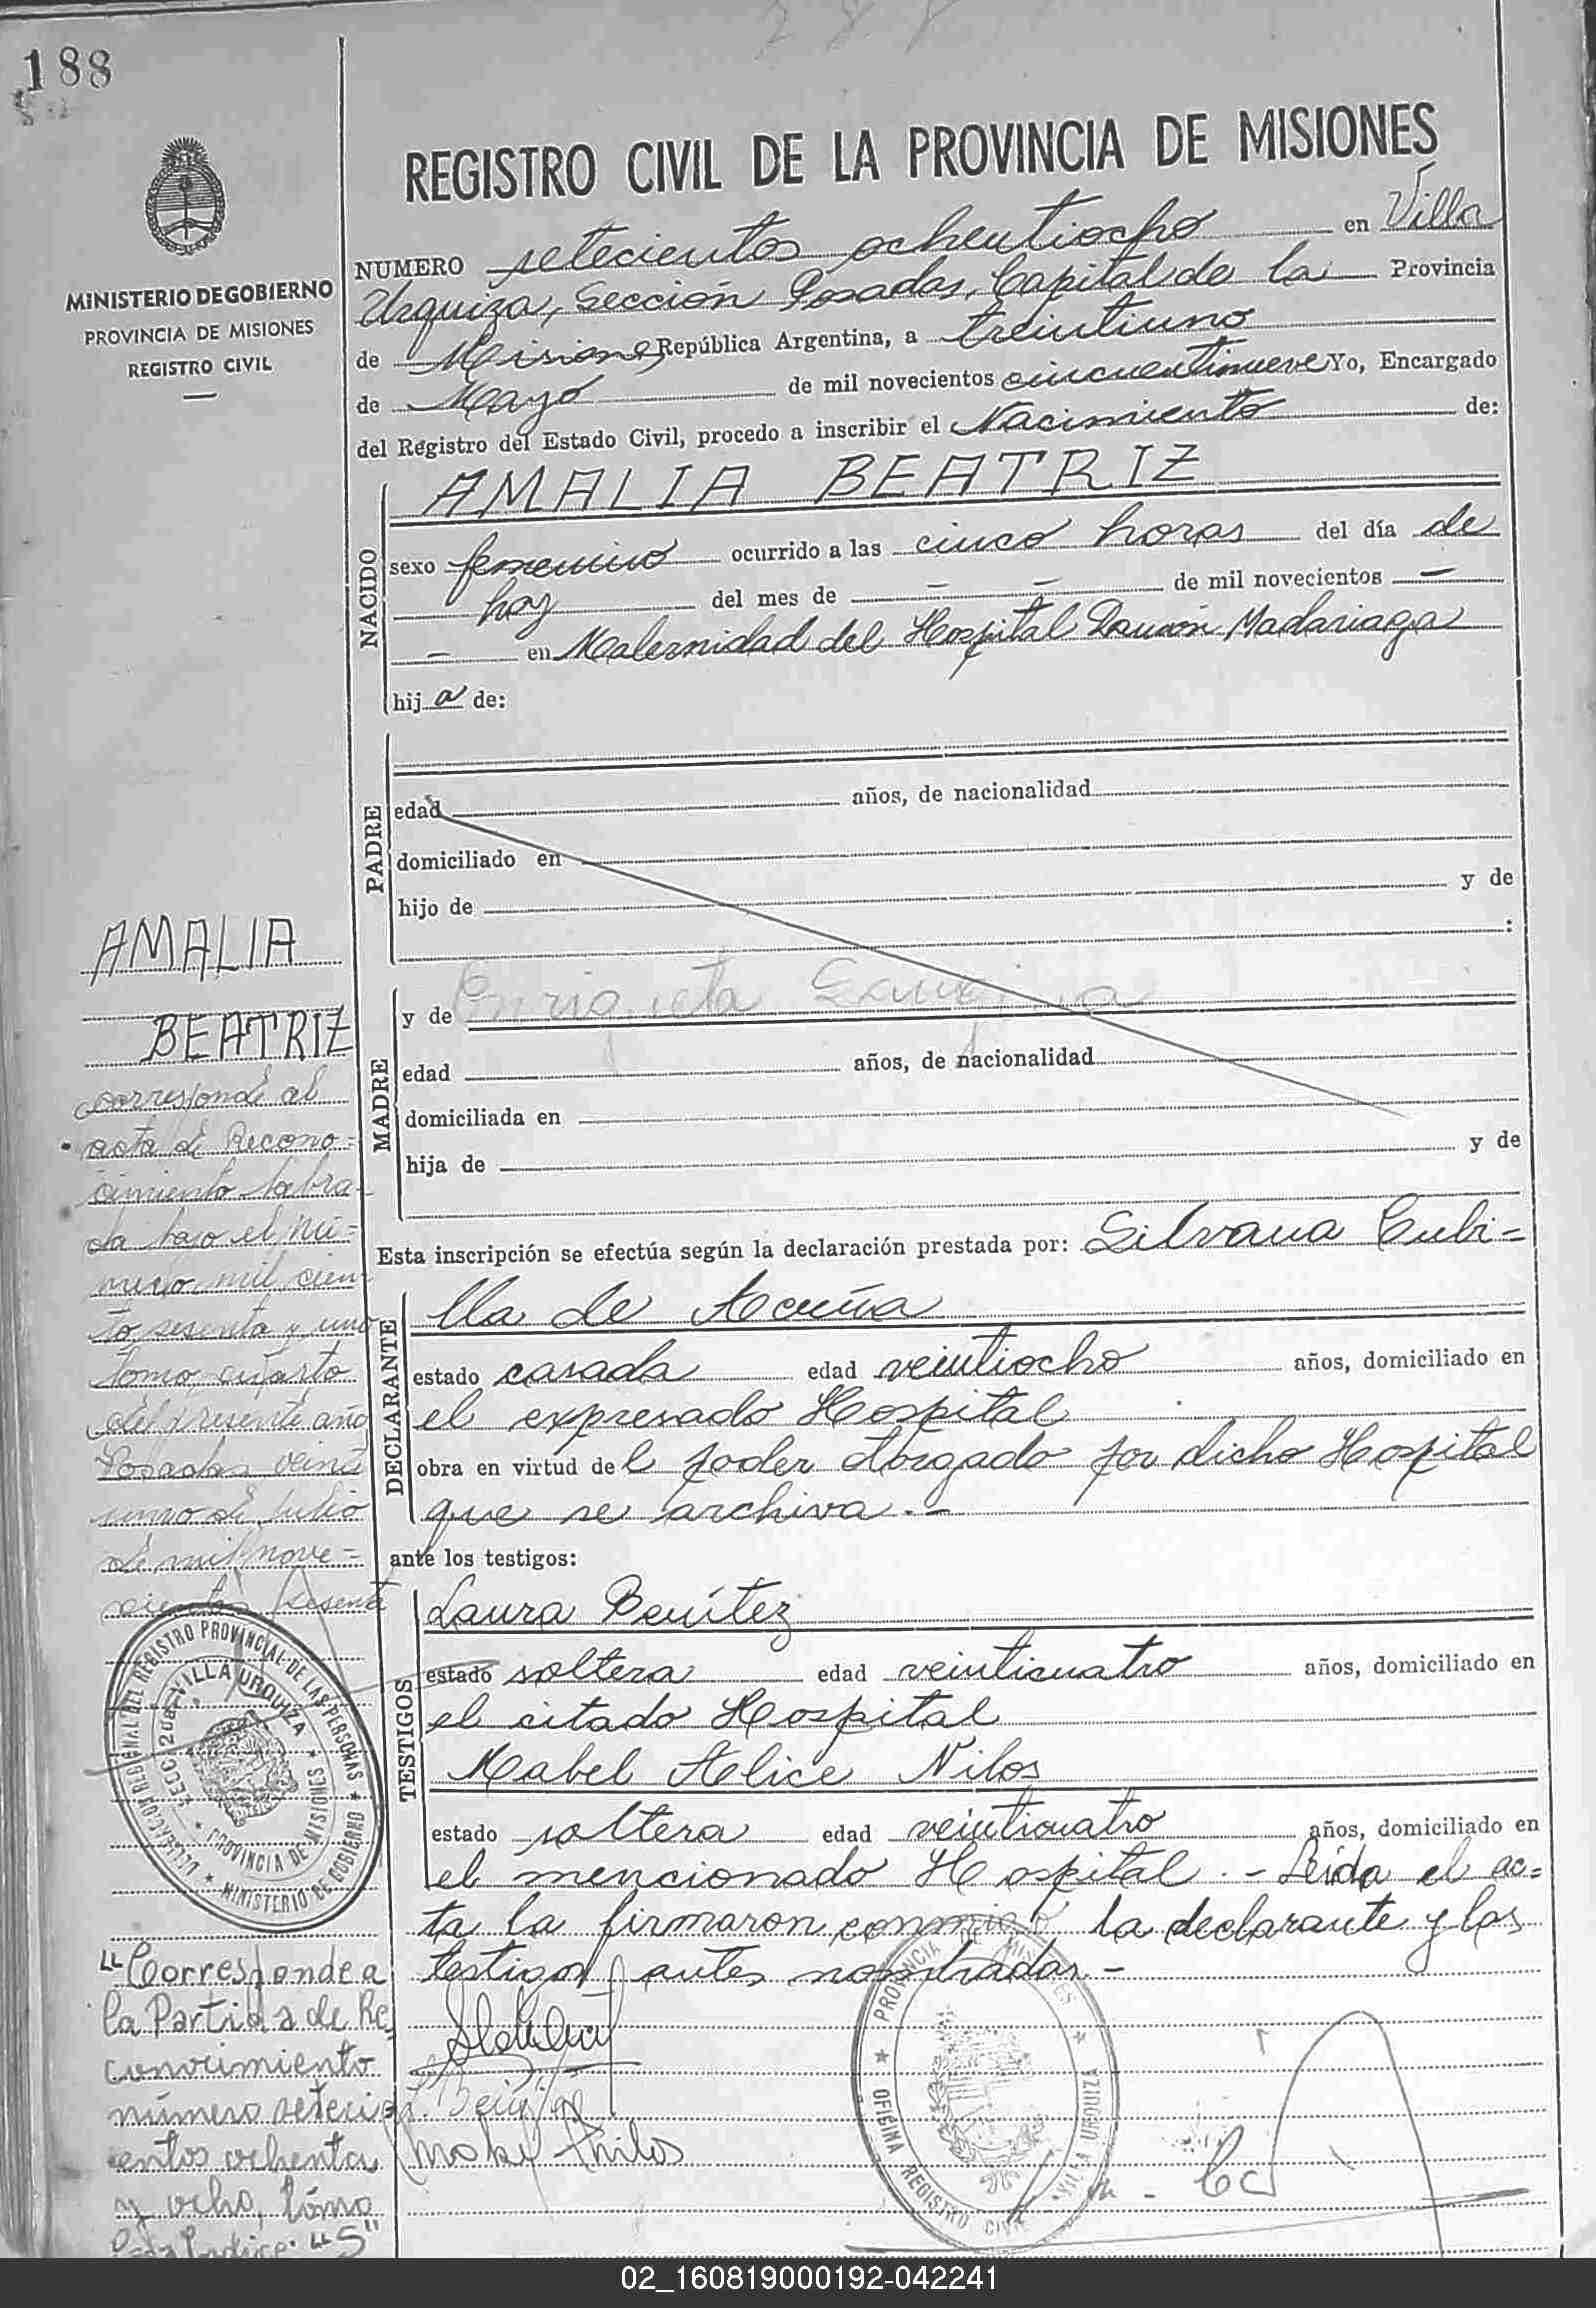 188
MINISTERIO DE GOBIERNO
PROVINCIA DE MISIONES
REGISTRO CIVIL
REGISTRO CIVIL DE LA PROVINCIA DE MISIONES
NUMERO setecientos ochentiocho en Villa
Urquiza, Sección Posadas, Capital de la Provincia
de Misiones República Argentina, a treintiuno
de Mayo de mil novecientos cincuentinueve Yo, Encargado
del Registro del Estado Civil, procedo a inscribir el Nacimiento de:
NACIDO
AMALIA BEATRIZ
sexo femenino ocurrido a las cinco horas del día de
hoy del mes de - - de mil novecientos -
- en Maternidad del Hospital Ramón Madariaga
hij a de:
PADRE
edad años, de nacionalidad
domiciliado en
hijo de y de
:
MADRE
y de Enriqueta
edad años, de nacionalidad
domiciliada en
hija de y de
Esta inscripción se efectúa según la declaración prestada por: Silvana Cubi=
DECLARANTE
lla de Acuña
estado casada edad veintiocho años, domiciliado en
el expresado Hospital
obra en virtud de l poder otorgado por dicho Hospital
que se archiva.-
ante los testigos:
TESTIGOS
Laura Benítez
estado soltera edad veinticuatro años, domiciliado en
el citado Hospital
Mabel Alice Nilos
estado soltera edad veinticuatro años, domiciliado en
el mencionado Hospital.- Leída el ac=
ta la firmaron conmigo la declarante y los
testigos antes nombrados.-
AMALIA
BEATRIZ
corresponde al
acta de Recono=
cimiento labra-
da bajo el nú=
mero mil cien
to sesenta y uno
tomo cuarto
del presente año
Posadas veinti
uno de Julio
de mil nove=
cientos sesenta
DELEGACION REGIONAL DEL REGISTRO PROVINCIAL DE LAS PERSONAS
SECC. 2da. VILLA URQUIZA
PROVINCIA DE MISIONES
MINISTERIO DE GOBIERNO
"Corresponde a
la Partida de Re
conocimiento
número seteci
entos ochenta
y ocho, tomo
"S"
PROVINCIA DE MISIONES
OFICINA REGISTRO CIVIL
VILLA URQUIZA
02_160819000192-042241